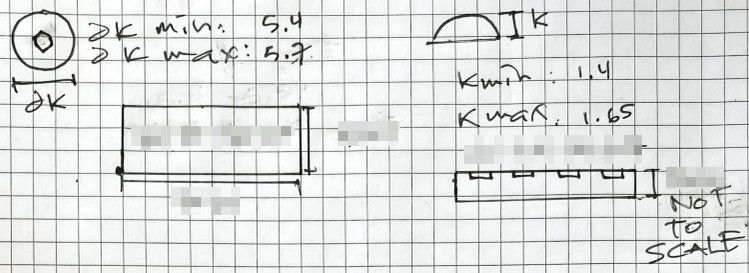 ∂K min: 5.4
∂K max: 5.7
∂K
K
Kmin: 1.4
Kmax. 1.65
NOT
TO
SCALE